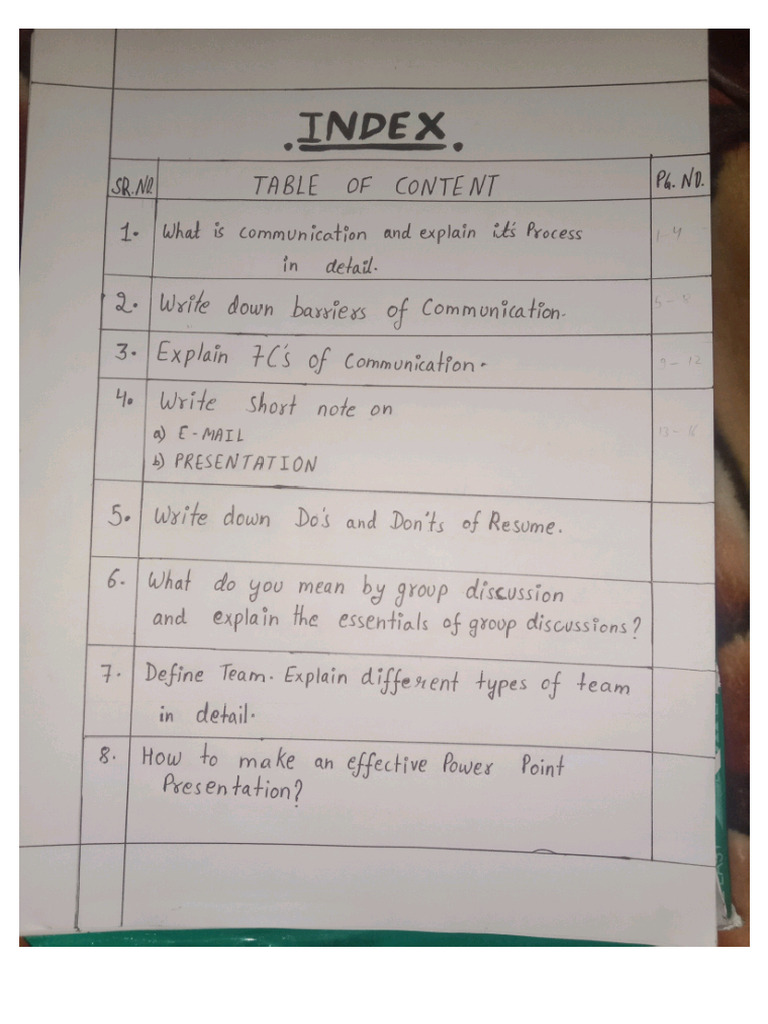 .INDEX.
SR.NO. TABLE OF CONTENT PG. NO.
1. What is communication and explain it's Process 1-4
in detail.
2. Write down barriers of Communication. 5-8
3. Explain 7C's of Communication. 9-12
4. Write short note on
a) E-MAIL
b) PRESENTATION
5. Write down Do's and Don'ts of Resume.
6. What do you mean by group discussion
and explain the essentials of group discussions?
7. Define Team. Explain different types of team
in detail.
8. How to make an effective Power Point
Presentation?